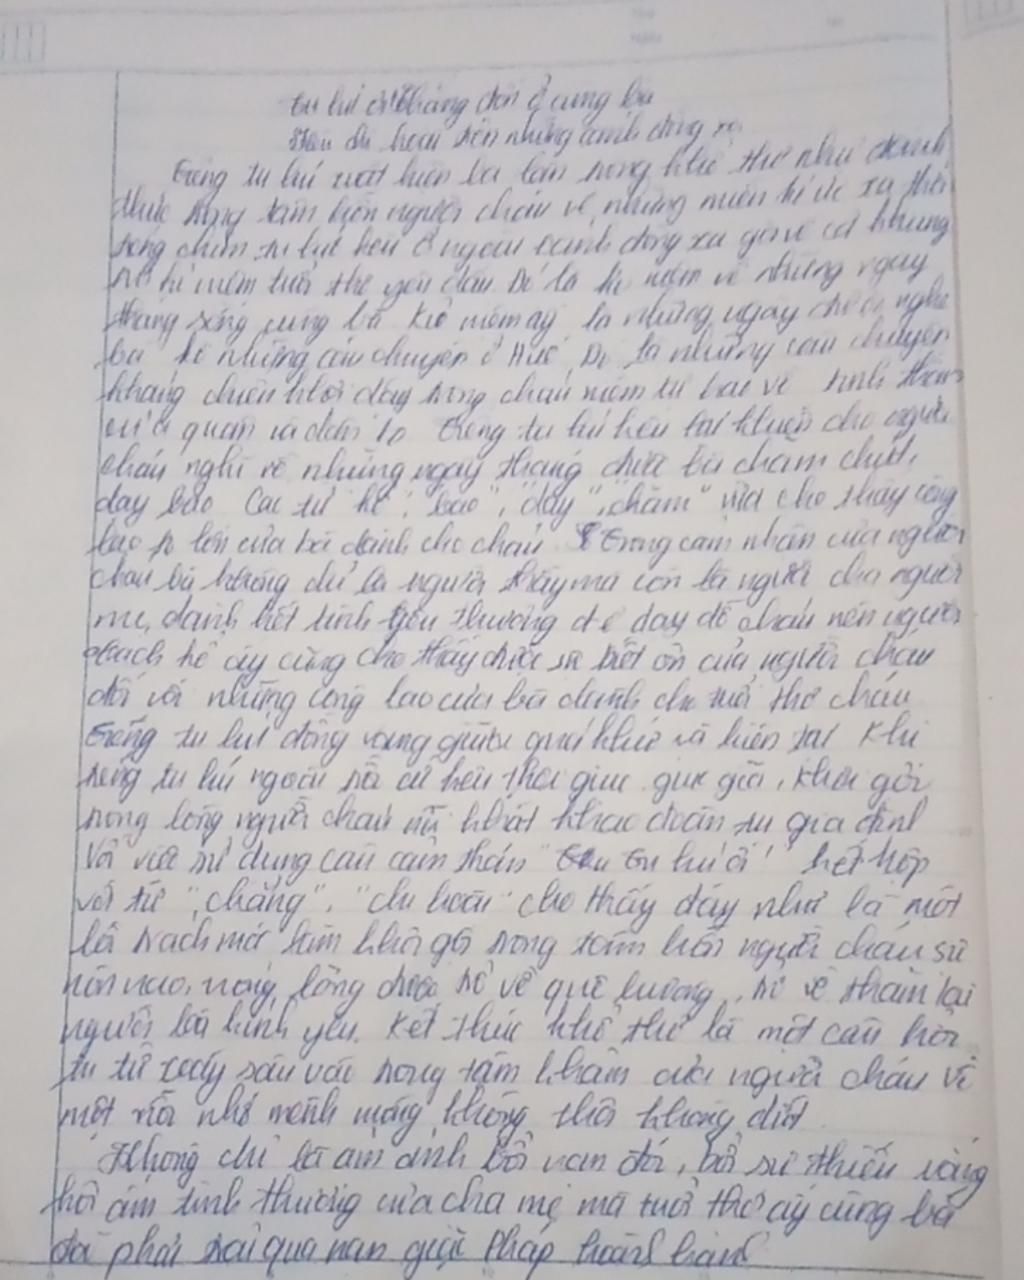 tu hú ơi! chẳng đến ở cùng bà
kêu chi hoài trên những cánh đồng xa
Tiếng tu hú xuất hiện ba lần trong khổ thơ như đánh
thức trong tâm hồn người cháu về những miền kí ức xa thôi
tiếng chim tu hú kêu ở ngoài cánh đồng xa gợi về cả khung
trời kỉ niệm tuổi thơ yêu dấu. Đó là kỉ niệm về những ngày
tháng sống cùng bà. Kỉ niệm ấy là những ngày cháu nghe
bà kể những câu chuyện ở Huế. Đó là những câu chuyện
kháng chiến khơi dậy trong cháu niềm tự hào về tinh thần
của quân và dân ta. Tiếng tu hú kêu lại khiến cho người
cháu nghĩ về những ngày tháng được bà chăm chút,
dạy bảo. Các từ "kể", "bảo", "dạy", "chăm" vừa cho thấy công
lao to lớn của bà dành cho cháu. Trong cảm nhận của người
cháu bà không chỉ là người thầy mà còn là người cha người
mẹ, dành hết tình yêu thương để dạy dỗ cháu nên người
cách kể ấy cũng cho thấy được sự biết ơn của người cháu
đối với những công lao của bà dành cho tuổi thơ cháu.
Tiếng tu hú đồng vọng giữa quá khứ và hiện tại. Khi
tiếng tu hú ngoài kia cứ kêu thôi giục giục giã, khơi gợi
trong lòng người cháu nỗi khát khao đoàn tụ gia đình
Với việc sử dụng câu cảm thán "Tu hú ơi!" kết hợp
với từ "chẳng", "chi hoài" cho thấy đây như là một
lời trách móc làm khơi gợi trong tâm hồn người cháu sự
nôn nao, mong lòng được trở về quê hương, trở về thăm lại
người bà kính yêu. Kết thúc khổ thơ là một câu hỏi
tu từ xoáy sâu vào trong tâm khảm của người cháu về
một nỗi nhớ mênh mông, không thôi không dứt.
Không chỉ là ám ảnh bởi nạn đói, bởi sự thiếu vắng
hơi ấm tình thương của cha mẹ mà tuổi thơ ấy cùng bà
đã phải trải qua nạn giặc Pháp hoành hành